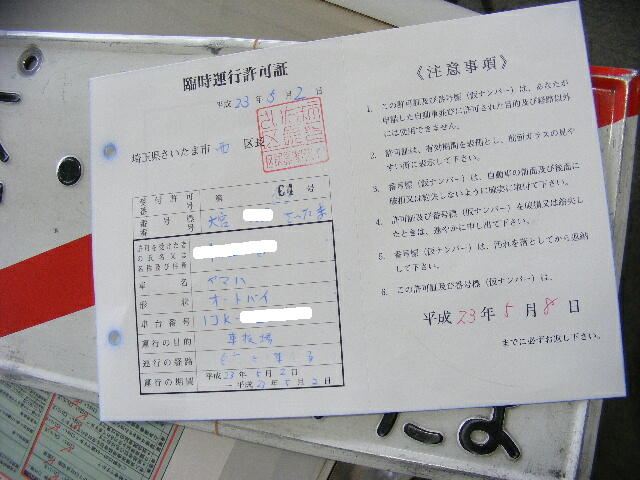 臨時運行許可証
平成 23 年 5 月 2 日
埼玉県さいたま市 西 区長
受付許可番号 第 64 号
番号標番号 大宮 さいたま
許可を受けたものの氏名又は名称及び住所
車名 ヤマハ
形状 オートバイ
車台番号 1JK-
運行の目的 車検場
運行の経路 さいたま
運行の期間 平成23年5月2日
～平成23年5月2日
《注意事項》
1. この許可証及び番号標（仮ナンバー）は、あなたが
申請した自動車並びに許可された目的及び経路以外
には使用できません。
2. 許可証は、有効期間を表面とし、前面ガラスの見や
すい所に表示して下さい。
3. 番号標（仮ナンバー）は、自動車の前面及び後面に
破損又は紛失しないように確実に取付て下さい。
4. 許可証及び番号標（仮ナンバー）を破損又は紛失し
たときは、速やかに申し出て下さい。
5. 番号標（仮ナンバー）は、汚れを落としてから返納
して下さい。
6. この許可証及び番号標（仮ナンバー）は、
平成 23 年 5 月 8 日
までに必ずお返し下さい。